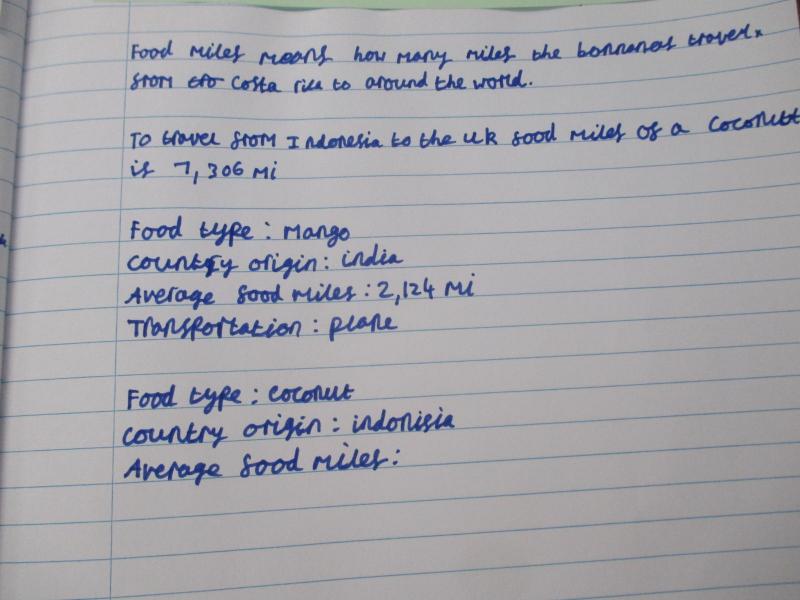 Food miles means how many miles the bannanas travel.
from Costa rica to around the world.
To travel from Indonesia to the UK food miles of a coconutt
is 7,306 mi
Food type : Mango
country origin : india
Average food miles : 2,124 mi
Transportation : plane
Food type : coconut
country origin : indonisia
Average food miles :